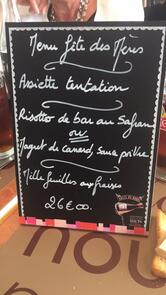 Menu fête des Mères
Assiette tentation
Risotto de bar au Safran
ou
Magret de canard, sauce poivre
Mille feuilles aux fraises
26€00.
nou